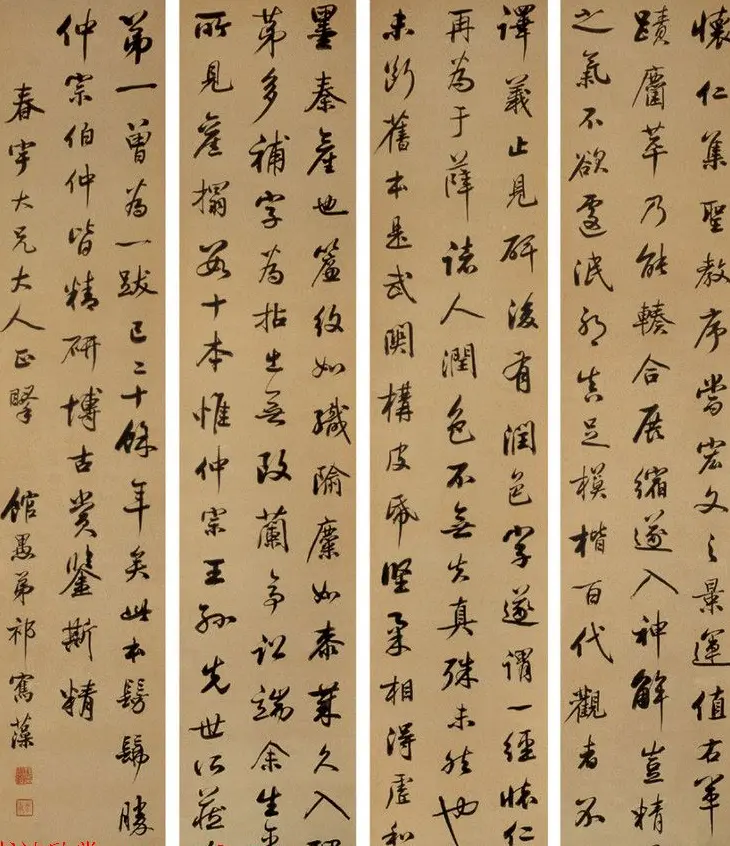 懷仁集聖教序當宏文之景運值右軍
蹟麕萃乃能轃合展縮遂入神解豈精
之氣不欲遽泯真足模楷百代觀者不
譯義止見研後有潤色字遂謂一經懷仁
再為于薛諸人潤色不無失真殊未然也
未斷舊本是武關構皮紙堅柔相得虛和
墨秦產也簾紋如織隃麋如漆久入
第多補字為拈出無改蘭亭訟端余生平
所見舊搨數十本惟仲宗王孫先世所藏
第一曾為一跋已二十餘年矣此本髣髴勝
仲宗伯仲皆精研博古賞鑒斯精
春宇大兄大人正 館愚弟祁寯藻